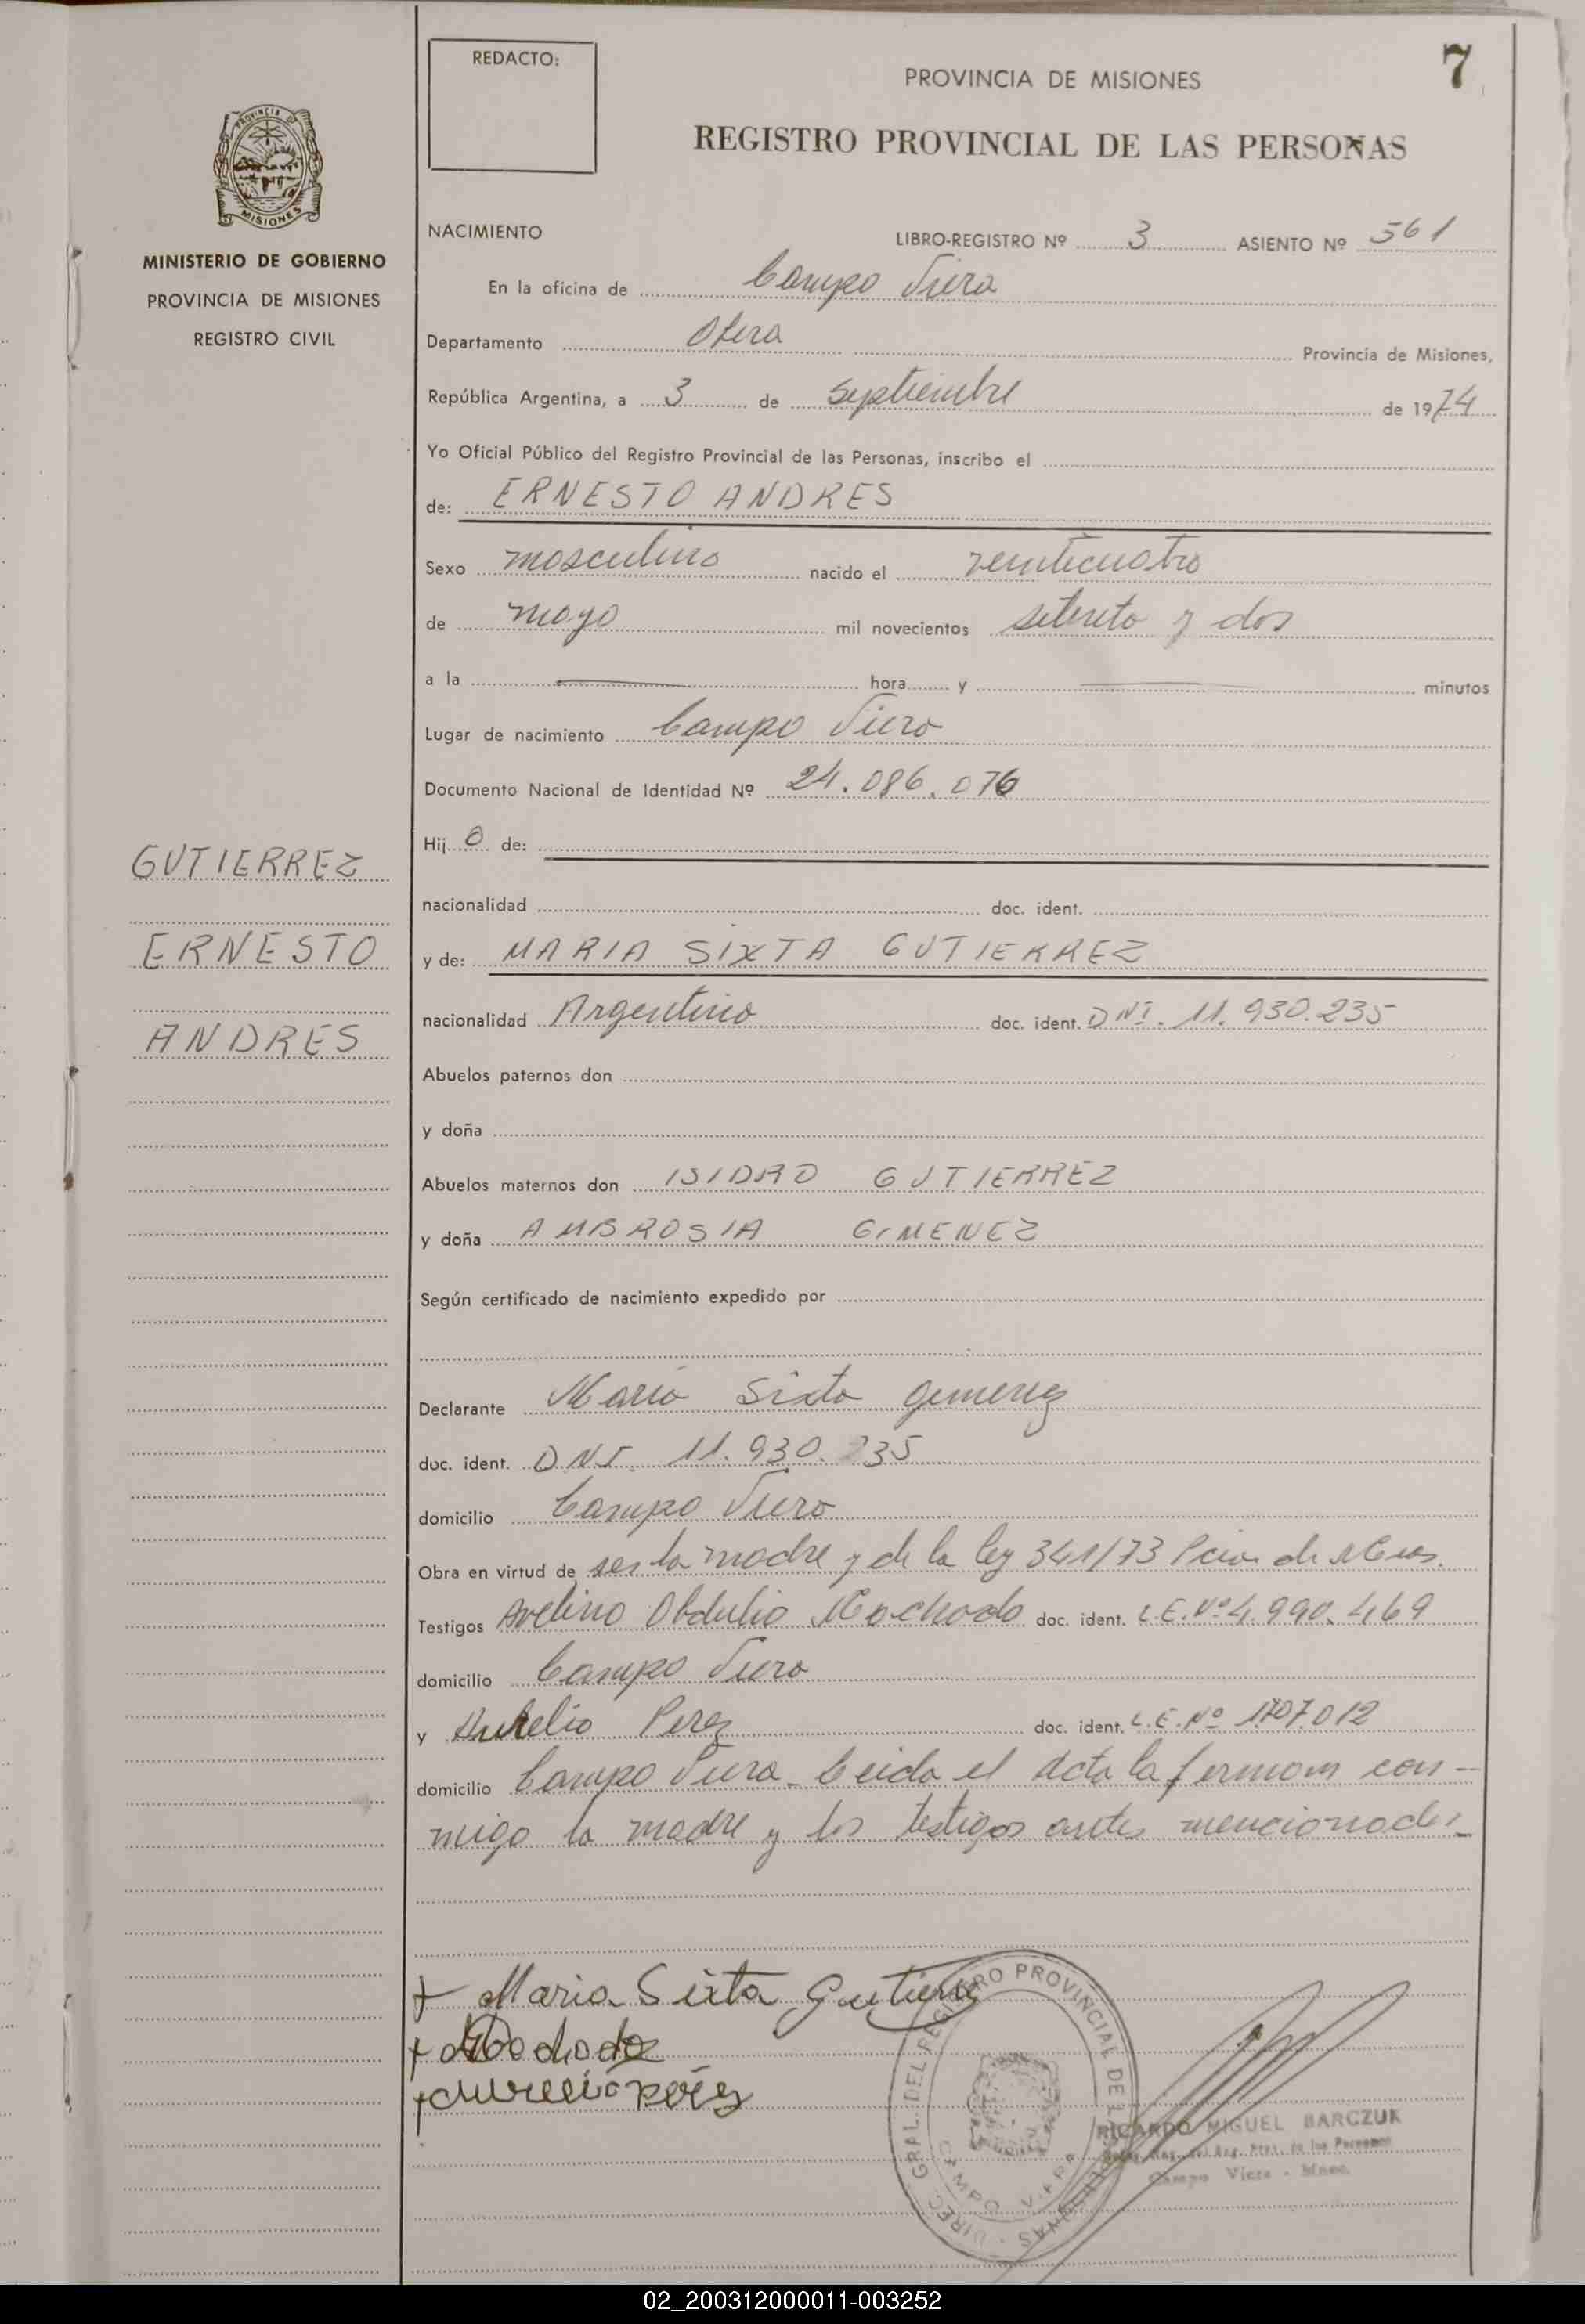 REDACTO:
7
PROVINCIA DE MISIONES
REGISTRO PROVINCIAL DE LAS PERSONAS
PROVINCIA DE MISIONES
MINISTERIO DE GOBIERNO
PROVINCIA DE MISIONES
REGISTRO CIVIL
NACIMIENTO
LIBRO-REGISTRO Nº 3 ASIENTO Nº 561
En la oficina de Campo Viera
Departamento Obera Provincia de Misiones,
República Argentina, a 3 de septiembre de 1974
Yo Oficial Público del Registro Provincial de las Personas, inscribo el
de: ERNESTO ANDRES
Sexo masculino nacido el veinticuatro
de mayo mil novecientos setenta y dos
a la hora y minutos
Lugar de nacimiento Campo Viera
Documento Nacional de Identidad Nº 24.086.076
Hij o de:
GUTIERREZ
ERNESTO
ANDRES
nacionalidad doc. ident.
y de: MARIA SIXTA GUTIERREZ
nacionalidad Argentina doc. ident. DNI. 11.930.235
Abuelos paternos don
y doña
Abuelos maternos don ISIDRO GUTIERREZ
y doña AMBROSIA GIMENEZ
Según certificado de nacimiento expedido por
Declarante Maria Sixta Gimenez
doc. ident. D.N.I. 11.930.235
domicilio Campo Viera
Obra en virtud de ser la madre y de la ley 341/73 Pcia. de Mnes.
Testigos Avelino Obdulio Machado doc. ident. L.E.Nº 4.990.469
domicilio Campo Viera
y Aurelio Perez doc. ident. L.E.Nº 1.707.012
domicilio Campo Viera. Leida el Acta la firman con-
migo la madre y los testigos antes mencionados-
+ Maria Sixta Gutierrez
+ Machado
+ Aurelio perez
DIREC. GRAL. DEL REGISTRO PROVINCIAL DE LAS PERSONAS
CAMPO VIERA
RICARDO MIGUEL BARCZUK
Campo Viera - Mnes.
02_200312000011-003252